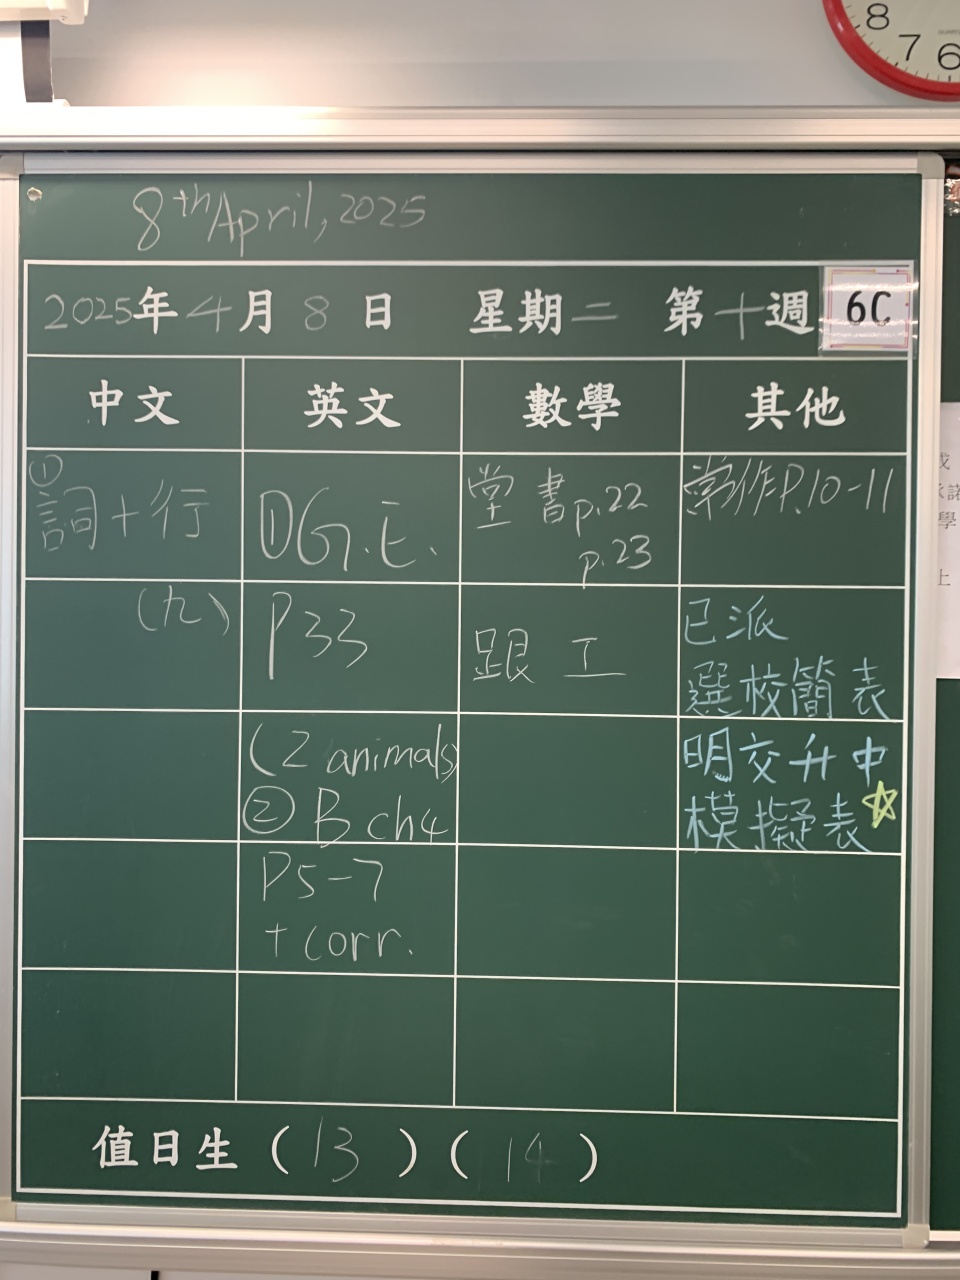 8 7 6
8th April, 2025
2025年4月8日 星期二 第十週 6C
中文 英文 數學 其他
① 詞+行
(九)
① G.E.
P33
(2 animals)
② B ch4
P5-7
+ corr.
堂書p.22
p.23
跟工
常作P.10-11
已派
選校簡表
明交升中
模擬表☆
值日生(13)(14)
諾
學
上